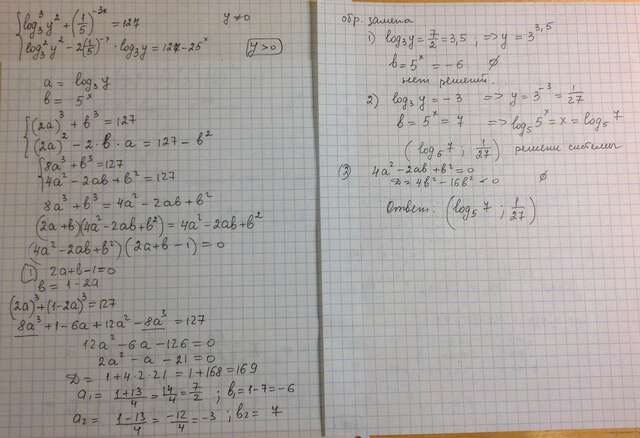 log₃³y² + (1/5)^(-3x) = 127    y≠0
log₃²y² - 2(1/5)^(-x) · log₃y = 127 - 25^x    y>0
a = log₃y
b = 5^x
(2a)³ + b³ = 127
(2a)² - 2·b·a = 127 - b²
8a³ + b³ = 127
4a² - 2ab + b² = 127
8a³ + b³ = 4a² - 2ab + b²
(2a+b)(4a² - 2ab + b²) = 4a² - 2ab + b²
(4a² - 2ab + b²)(2a+b-1) = 0
① 2a+b-1=0
b = 1-2a
(2a)³ + (1-2a)³ = 127
8a³ + 1 - 6a + 12a² - 8a³ = 127
12a² - 6a - 126 = 0
2a² - a - 21 = 0
D = 1+4·2·21 = 1+168 = 169
a₁ = (1+13)/4 = 14/4 = 7/2 ; b₁ = 1-7 = -6
a₂ = (1-13)/4 = -12/4 = -3 ; b₂ = 7
обр. замена
1) log₃y = 7/2 = 3,5 ; => y = 3^3,5
b = 5^x = -6    ∅
нет решений.
2) log₃y = -3 => y = 3^-3 = 1/27
b = 5^x = 7 => log₅5^x = x = log₅7
(log₅7 ; 1/27) решение системы
② 4a² - 2ab + b² = 0
D = 4b² - 16b² < 0    ∅
Ответ: (log₅7 ; 1/27)